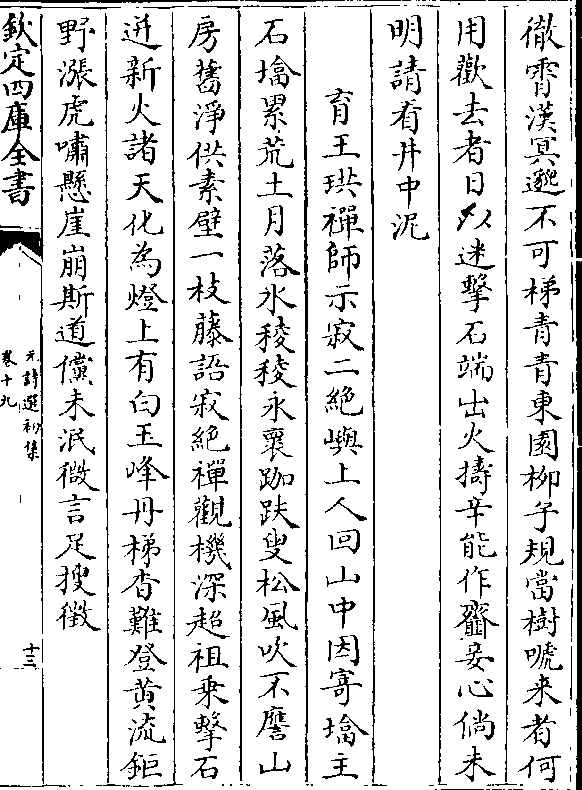 徹霄漢冥邈不可梯青青東園柳子規當樹嗁来者何
用歡去者日以迷擊石端出火擣辛能作齏妄心倘未
明請看井中泥
育王珙禪師示寂二絶嶼上人回山中因寄墖主
石墖累荒土月落氷稜稜永襄跏趺叟松風吹不譍山
房舊淨供素壁一枝藤語寂絶禪觀機深超祖乗擊石
迸新火諸天化為燈上有白玉峰丹梯杳難登黄流鉅
野漲虎嘯懸崖崩斯道儻未泯微言足搜徴
欽定四庫全書
元詩選初集
卷十九
十三